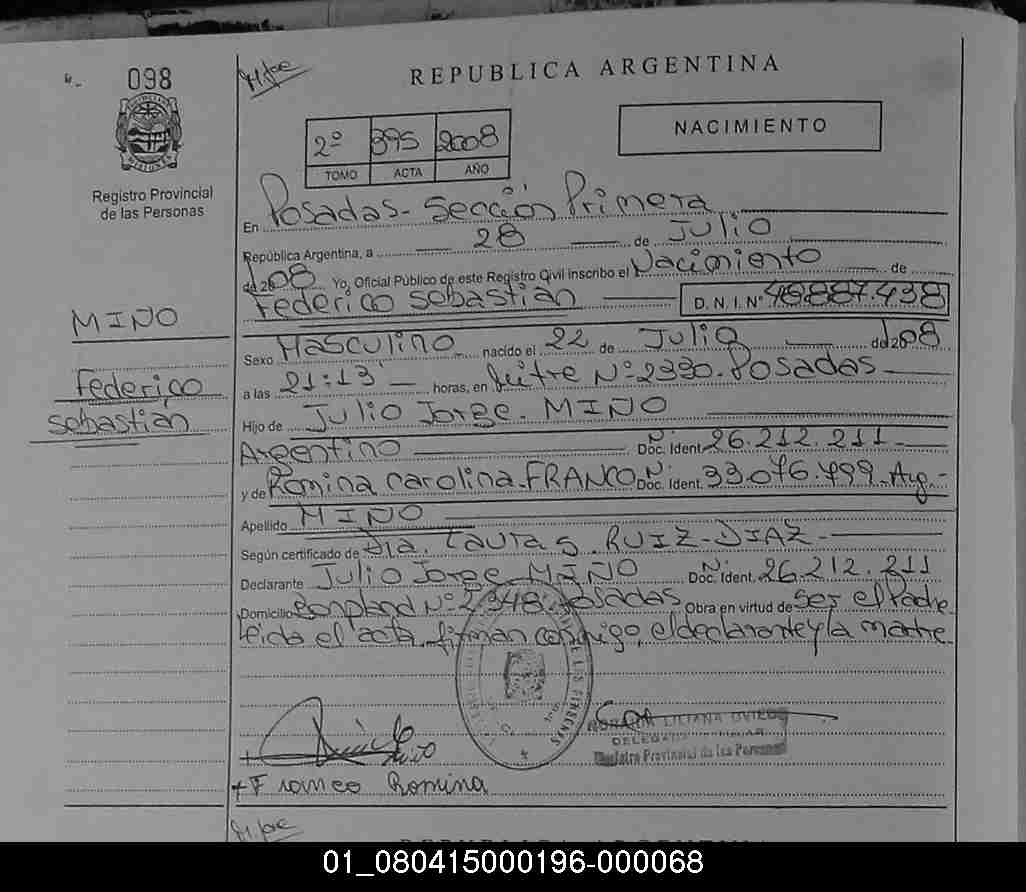 098
REPUBLICA ARGENTINA
2º 395 2008
TOMO ACTA AÑO
NACIMIENTO
Registro Provincial
de las Personas
En Posadas - Sección Primera
República Argentina, a 28 de Julio
de 2008 Yo, Oficial Público de este Registro Civil inscribo el Nacimiento de
Federico Sebastián D. N. I. Nº 48887.438
MIÑO
Federico
Sebastián
Sexo Masculino nacido el 22 de Julio de 2008
a las 21:13 horas, en Mitre Nº 2330. Posadas
Hijo de Julio Jorge. MIÑO
Argentino Doc. Ident. 26.212.211
y de Romina Carolina FRANCO Doc. Ident. 33.076.799 Arg.
Apellido MIÑO
Según certificado de Dra. Laura RUIZ-DIAZ
Declarante Julio Jorge MIÑO Doc. Ident. 26.212.211
Domicilio Bonpland Nº 2.348. Posadas Obra en virtud de Ser el Padre
Leida el acta, firman conmigo, el declarante y la madre
LILIANA OVIEDO
DELEGADA TITULAR
Registro Provincial de las Personas
+ Franco Romina
01_080415000196-000068